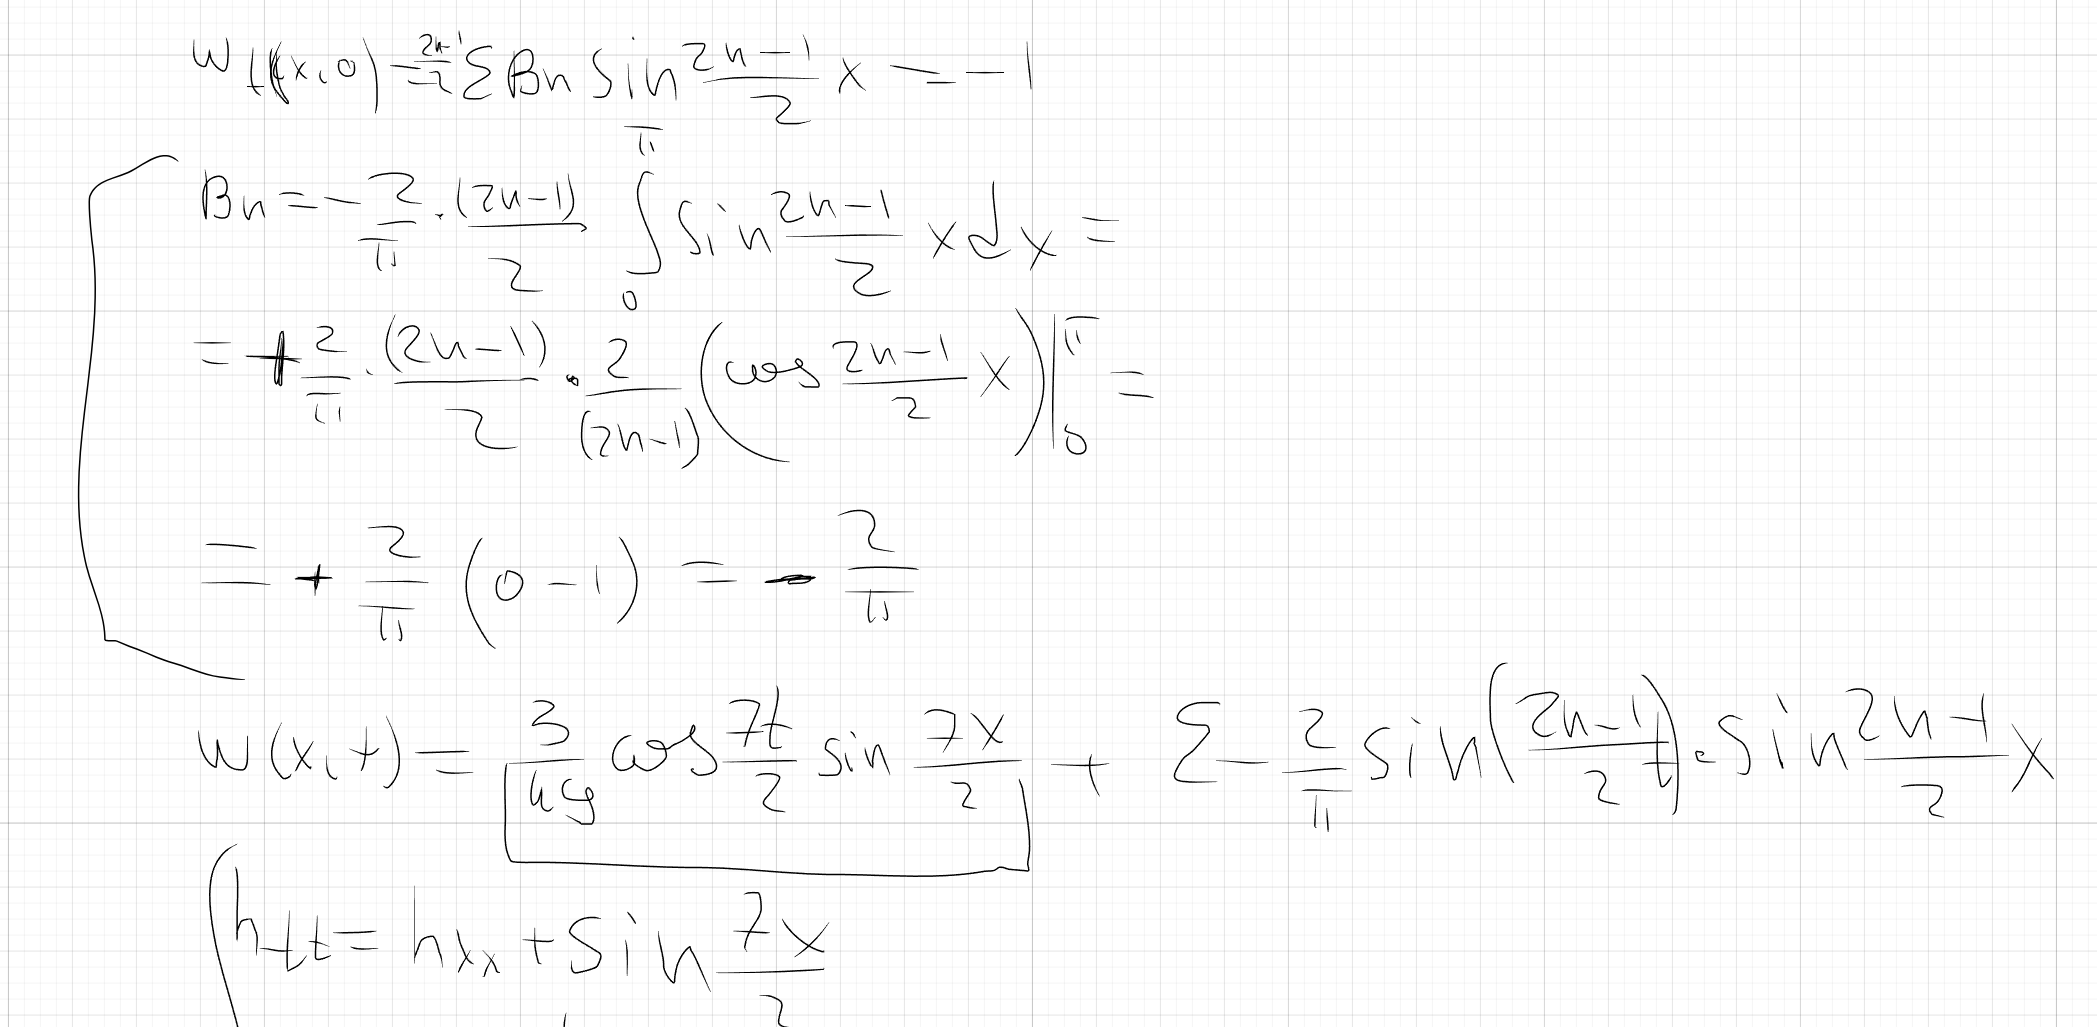 w_t(x,0) = (2n-1)/2 Σ Bn sin (2n-1)/2 x = -1
Bn = - 2/π · (2n-1)/2 ∫_0^π sin (2n-1)/2 x dx =
= + 2/π · (2n-1)/2 · 2/(2n-1) (cos (2n-1)/2 x) |_0^π =
= + 2/π (0 - 1) = - 2/π
w(x,t) = 3/49 cos 7t/2 sin 7x/2 + Σ - 2/π sin((2n-1)/2 t) · sin (2n-1)/2 x
h_tt = h_xx + sin 7x/2